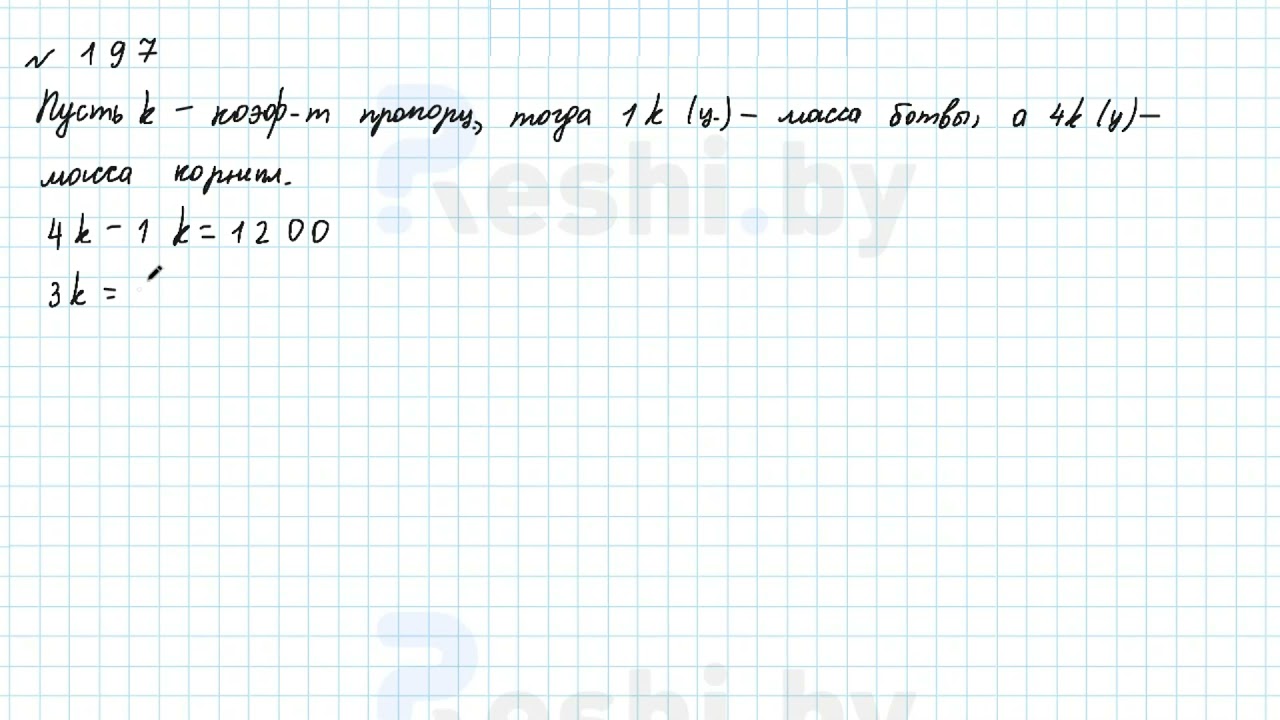 № 197
Пусть k – коэф-т пропорц., тогда 1k (ц.) – масса ботвы, а 4k (ц) –
масса корнепл.
4k - 1k = 1200
3k =
Reshi.by
Reshi.by